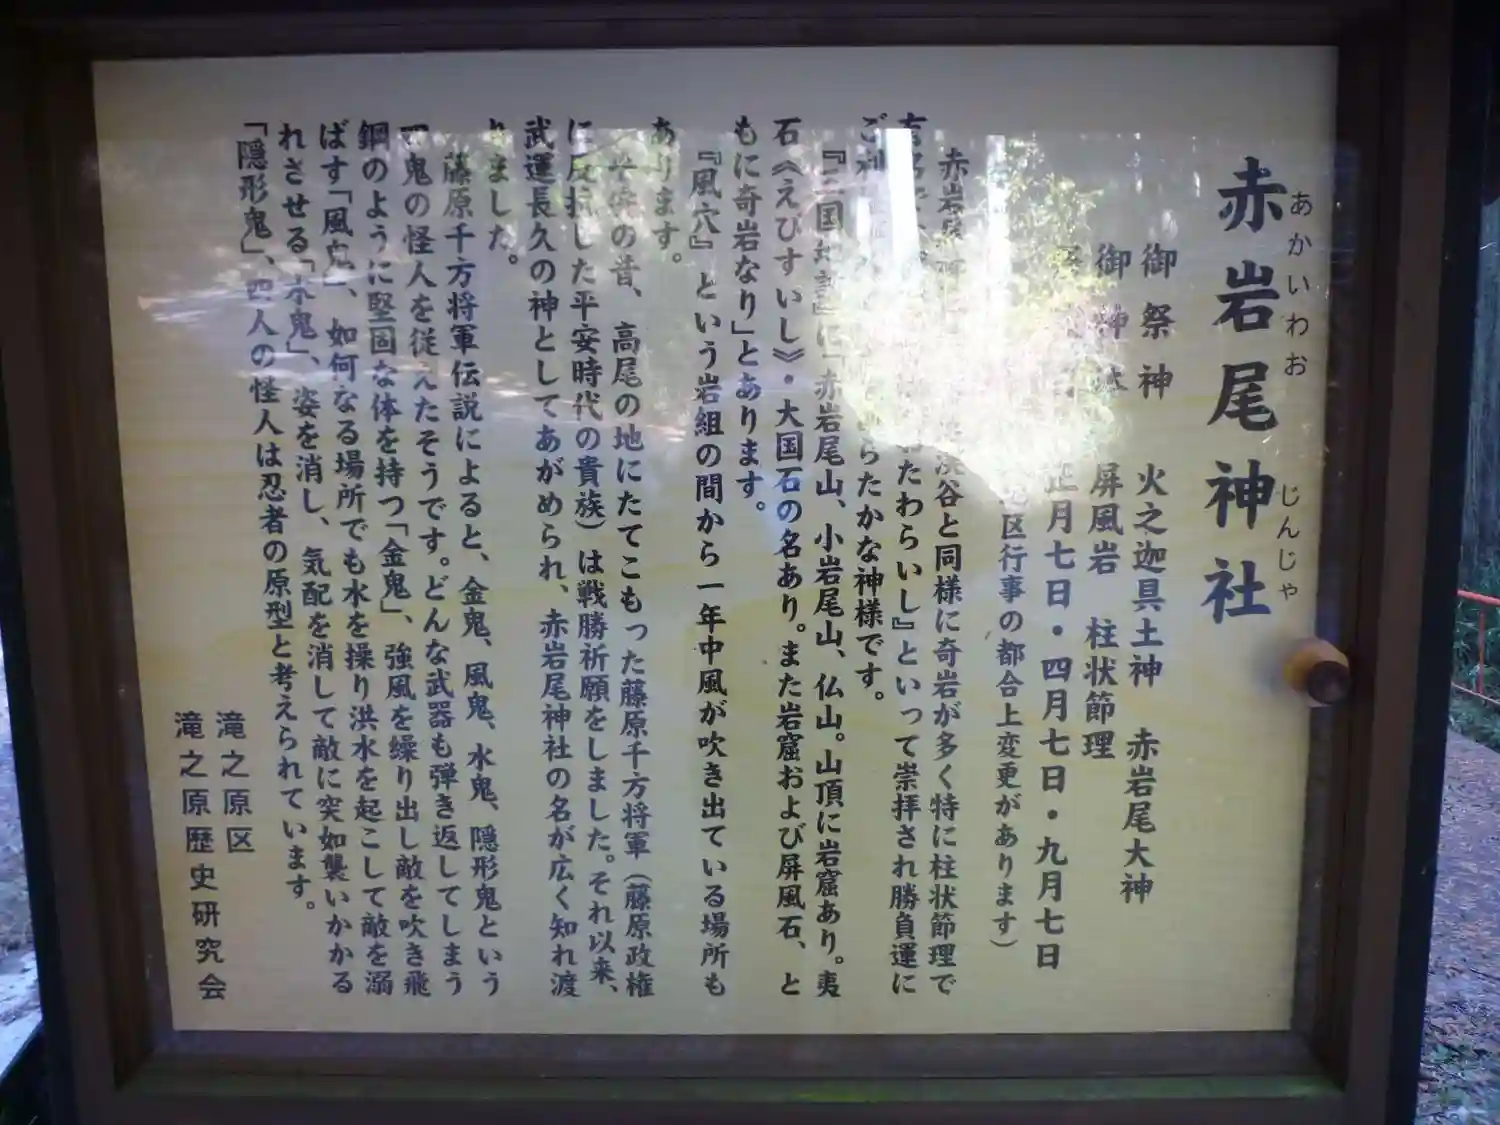 赤岩尾神社
あかいわお じんじゃ
御祭神 火之迦具土神 赤岩尾大神
御神体 屏風岩 柱状節理
正月七日・四月七日・九月七日
区行事の都合上変更があります）
赤岩尾 渓谷と同様に奇岩が多く特に柱状節理で
有名 たわらいし』といって崇拝され勝負運に
ご利 らたかな神様です。
『三国地誌』に「赤岩尾山、小岩尾山、仏山。山頂に岩窟あり。夷
石《えびすいし》・大国石の名あり。また岩窟および屏風石、と
もに奇岩なり」とあります。
『風穴』という岩組の間から一年中風が吹き出ている場所も
あります。
の昔、高尾の地にたてこもった藤原千方将軍（藤原政権
に反抗した平安時代の貴族）は戦勝祈願をしました。それ以来、
武運長久の神としてあがめられ、赤岩尾神社の名が広く知れ渡
りました。
藤原千方将軍伝説によると、金鬼、風鬼、水鬼、隠形鬼という
四鬼の怪人を従えたそうです。どんな武器も弾き返してしまう
鋼のように堅固な体を持つ「金鬼」、強風を繰り出し敵を吹き飛
ばす「風鬼」、如何なる場所でも水を操り洪水を起こして敵を溺
れさせる「水鬼」、姿を消し、気配を消して敵に突如襲いかかる
「隠形鬼」、四人の怪人は忍者の原型と考えられています。
滝之原区
滝之原歴史研究会